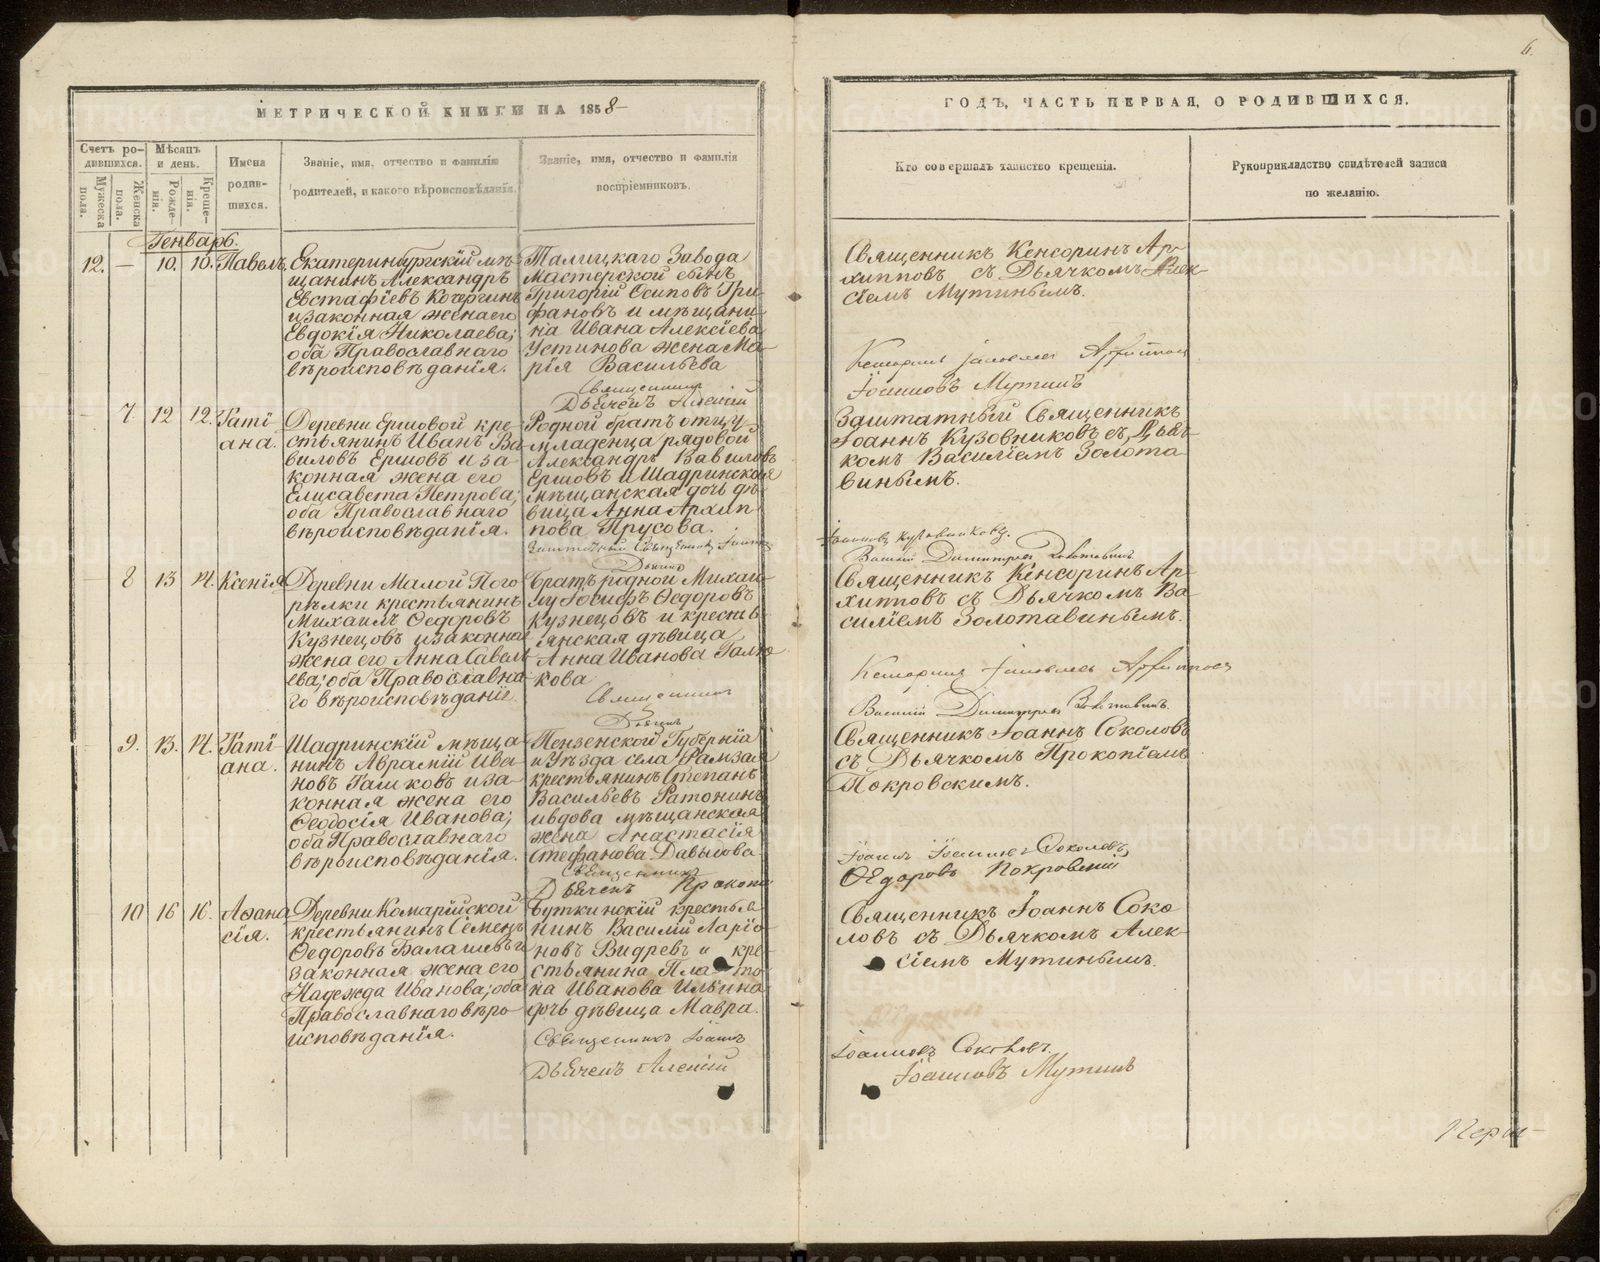 6.
МЕТРИЧЕСКОЙ КНИГИ НА 1858
ГОДЪ, ЧАСТЬ ПЕРВАЯ, О РОДИВШИХСЯ.
Счетъ ро-
дившихся.
Мужеска
пола.
Женска
пола.
Мѣсяцъ
и день.
Рожде-
нія.
Креще-
нія.
Имена
родив-
шихся.
Званіе, имя, отчество и фамилія
родителей, и какого вѣроисповѣданія.
Званіе, имя, отчество и фамилія
воспріемниковъ.
Кто совершалъ таинство крещенія.
Рукоприкладство свидѣтелей записи
по желанію.
Генварь.
12. — 10. 10. Павелъ,
Екатеринбургскій мѣ-
щанинъ Александръ
Евстафіевъ Кочергинъ
и законная жена его
Евдокія Николаева;
оба Православнаго
вѣроисповѣданія.
Талицкаго Завода
мастерской сынъ
Григорій Осиповъ Три-
фановъ и мѣщани-
на Ивана Алексіева
Устинова жена Ма-
рія Васильева
Священникъ
Дьячекъ Алексій
Священникъ Кенсоринъ Ар-
хипповъ съ Дьячкомъ Алек-
сіемъ Мутинымъ.
Іоанновъ Мутинъ
7 12 12. Таті
ана.
Деревни Ершовой кре-
стьянинъ Иванъ Ва-
виловъ Ершовъ и за-
конная жена его
Елисавета Петрова,
оба Православнаго
вѣроисповѣданія.
Родной братъ отцу
младенца рядовой
Александръ Вавиловъ
Ершовъ и Шадринская
мѣщанская дочь дѣ-
вица Анна Архип-
пова Прусова.
Заштатный Священникъ Іоаннъ
Дьячекъ
Заштатный Священникъ
Іоаннъ Кузовниковъ съ Дьяч-
комъ Василіемъ Золота
винымъ.
Іоанновъ Кузовниковъ.
Василій Димитріевъ Золотавинъ
8 13 14. Ксенія
Деревни Малой Пого
рѣлки крестьянинъ
Михаилъ Ѳедоровъ
Кузнецовъ и законная
жена его Анна Савель
ева; оба Православна
го вѣроисповѣданіе.
Братъ родной Михаи-
лу Іосифъ Ѳедоровъ
Кузнецовъ и кресть
янская дѣвица
Анна Иванова Галю
кова
Священникъ
Дьячекъ
Священникъ Кенсоринъ Ар-
хипповъ съ Дьячкомъ Ва-
силіемъ Золотавинымъ.
Василій Димитріевъ Золотавинъ.
9. 13. 14. Таті
ана.
Шадринскій мѣща-
нинъ Аврамій Ива-
новъ Галковъ и за-
конная жена его
Ѳеодосія Иванова;
оба Православнаго
вѣроисповѣданія.
Пензенской Губерніи
и Уѣзда села Рамзая
крестьянинъ Степанъ
Васильевъ Ратонинъ
и вдова мѣщанская
жена Анастасія
Стефанова Давыдова
Священникъ
Дьячекъ Прокопій
Священникъ Іоаннъ Соколовъ
съ Дьячкомъ Прокопіемъ
Покровскимъ.
Іоаннъ Іоанновъ Соколовъ
Ѳедоровъ Покровскій
10 16 16. Аѳана
сія.
Деревни Комарійской
крестьянинъ Семенъ
Ѳедоровъ Балашевъ и
законная жена его
Надежда Иванова; оба
Православнаго вѣро-
исповѣданія.
Буткинскій крестья
нинъ Василій Ларіо-
новъ Видревъ и кре-
стьянина Плато-
на Иванова Ильина
дочь дѣвица Мавра.
Священникъ Іоаннъ
Дьячекъ Алексій
Священникъ Іоаннъ Соко
ловъ съ Дьячкомъ Алек-
сіемъ Мутинымъ.
Іоанновъ Соколовъ.
Іоанновъ Мутинъ
METRIKI.GASO-URAL.RU